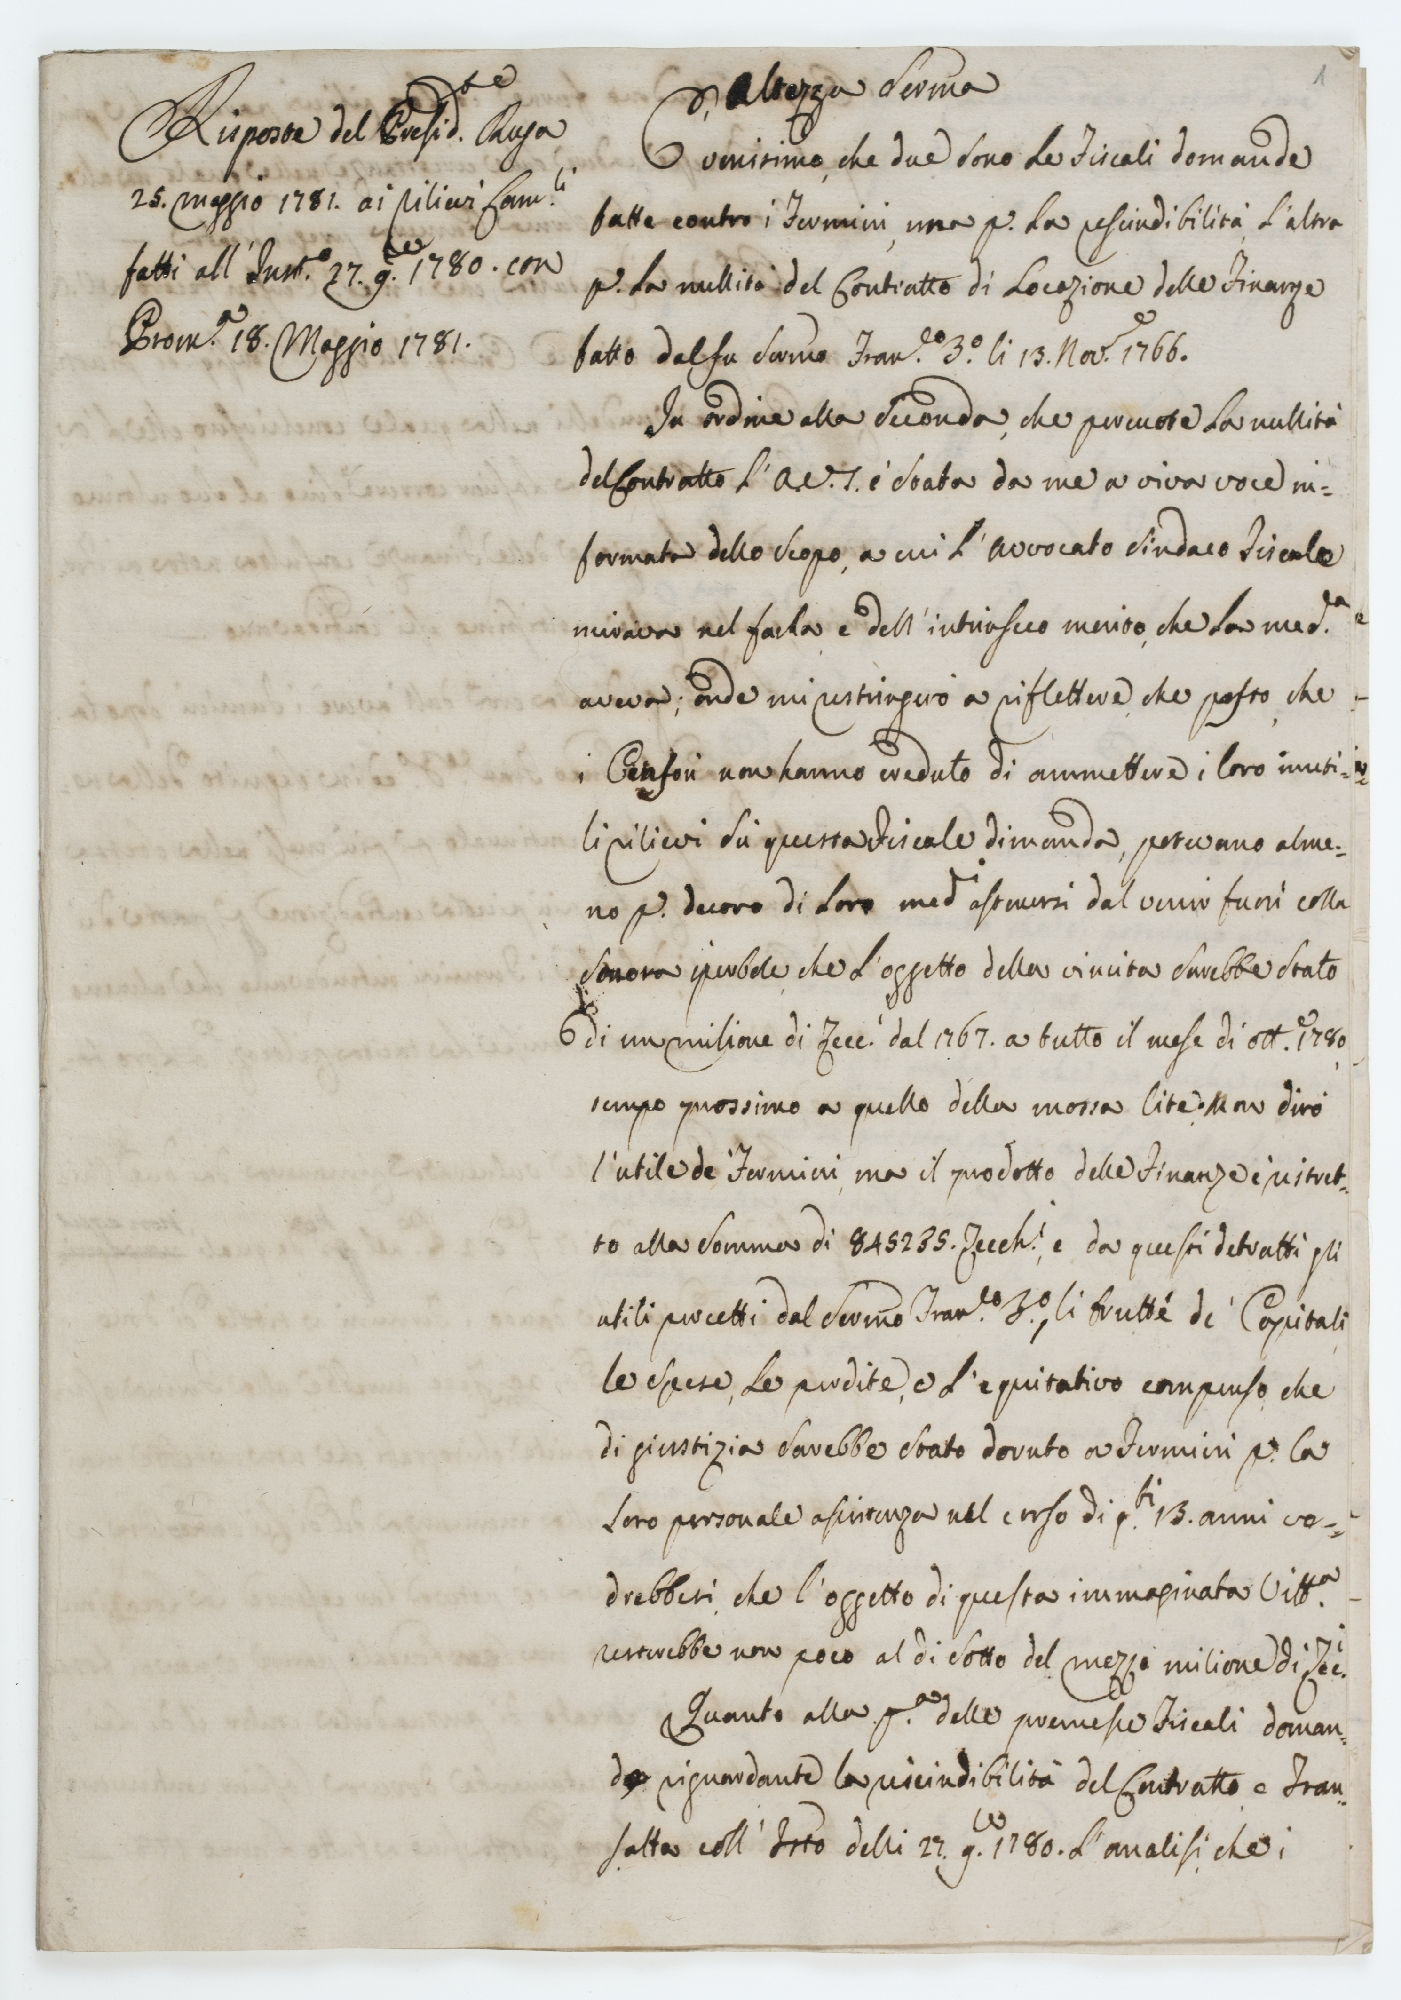 1
Risposte del Presid.te Ruga
25. Maggio 1781. ai rilievi Cam.li
fatti all' Instr.o 27. 9.bre 1780. con
Prom.a 18. Maggio 1781.
Altezza Serma
verissimo, che due sono le Fiscali domande
fatte contro i Fermieri, una p. la rescindibilità, l'altra
p. la nullità del Contratto di Locazione delle Finanze
fatto dal fu Sermo Fran.co 3.o li 13. Nov.e 1766.
In ordine alla seconda, che percuote la nullità
del Contratto l' A.V.S. è stata da me a viva voce in=
formata dello scopo, a cui l' Avvocato Sindaco Fiscale
mirava nel farla, e dell' intrinseco merito, che la med.a
aveva; onde mi restringerò a riflettere, che posto, che
i Censori non hanno creduto di ammettere i loro inuti=
li rilievi sù questa Fiscale dimanda, potevano alme=
no p. decoro di loro med.i astenersi dal venir fuori colla
sonora iperbole, che l' oggetto della vincita sarebbe stato
di un milione di Zecc.i dal 1767. a tutto il mese di ott.e 1780,
tempo prossimo a quello della mossa lite. Non dirò
l' utile de' Fermieri, ma il prodotto delle Finanze è ristret=
to alla somma di 845235. Zecch.i, e da questi detratti gli
utili percetti dal Sermo Fran.co 3.o, li frutti de' Capitali,
le spese, le perdite, e l' equitativo compenso, che
di giustizia sarebbe stato dovuto a Fermieri p. la
loro personale assistenza nel corso di q.ti 13. anni ve=
drebbesi, che l' oggetto di questa immaginata Vitt.a
resterebbe non poco al di sotto del mezzo milione di Zec.i
Quanto alla p.a delle premesse Fiscali doman=
de riguardante la rescindibilità del Contratto e Tran=
satta coll' Istto delli 27. 9.bre 1780. l' analisi, che i